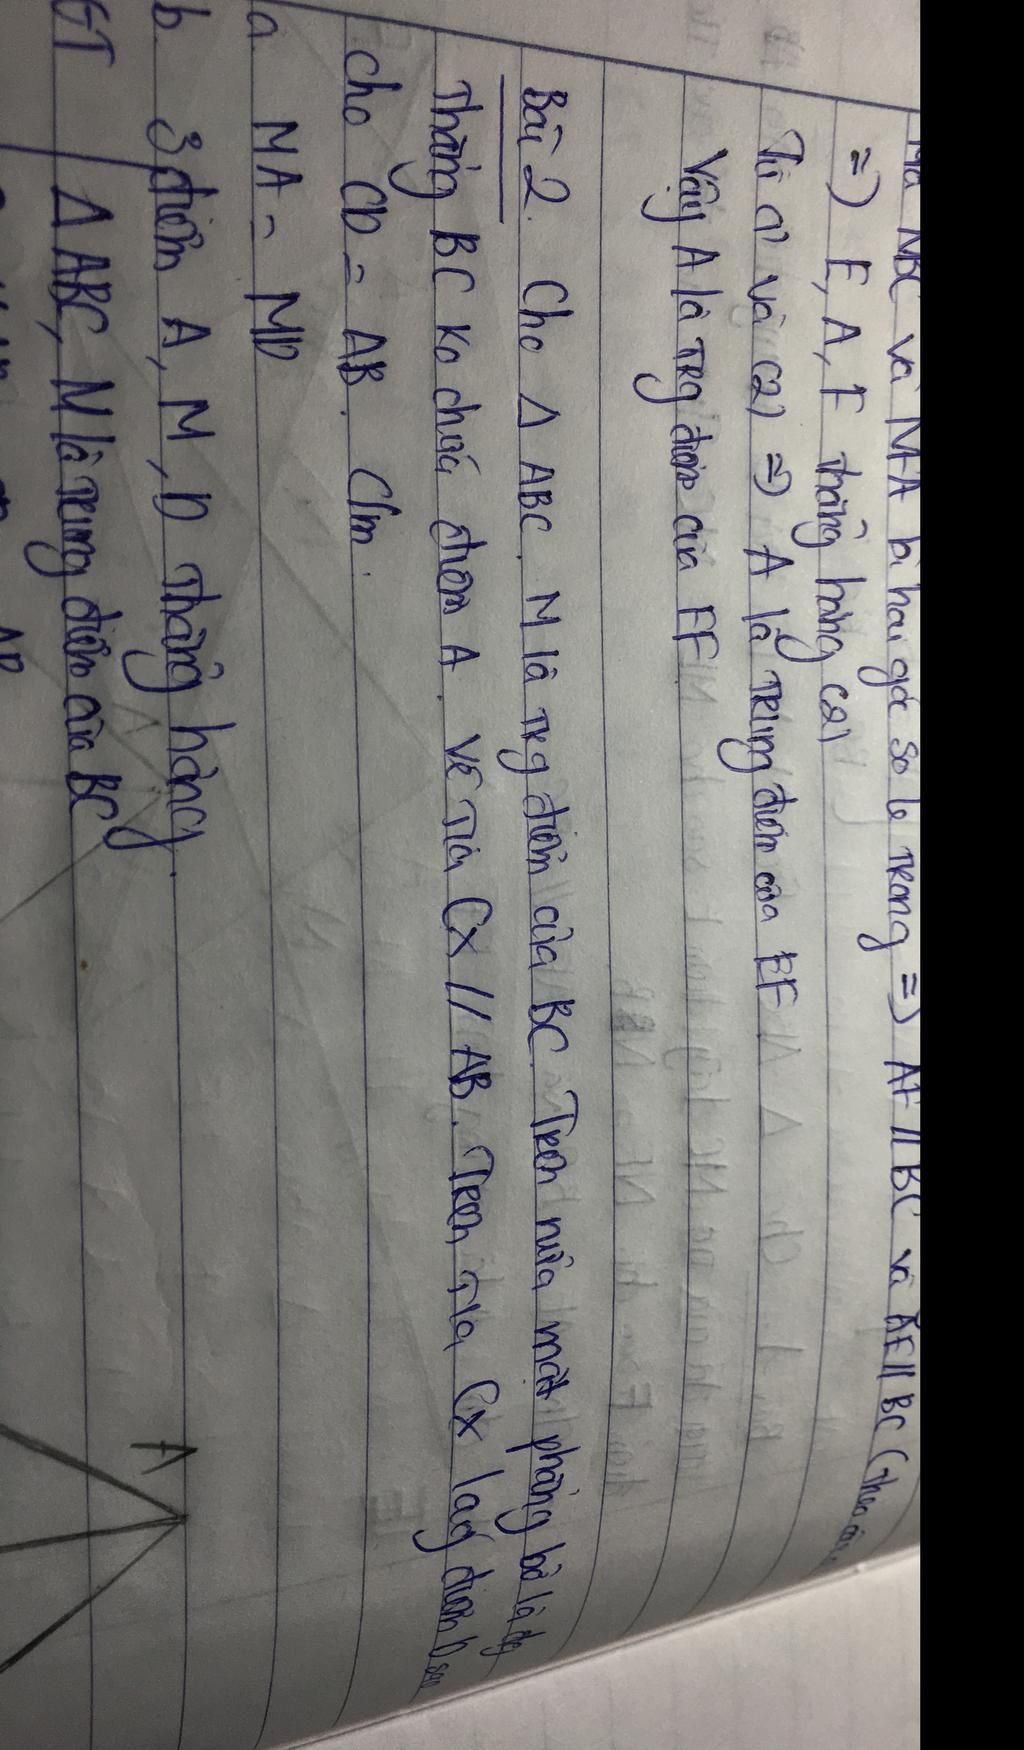 Mà NBC và MFA là hai góc so le trong => AF // BC và AE // BC (theo câu
=> E, A, F thẳng hàng (2)
Từ (1) và (2) => A là trung điểm của EF
Vậy A là trg điểm của EF
Bài 2. Cho Δ ABC. M là trg điểm của BC. Trên nửa mặt phẳng bờ là đg
thẳng BC ko chứa điểm A. Vẽ tia Cx // AB. Trên tia Cx lấy điểm D sao
cho CD = AB. C/m.
a MA = MD
b. 3 điểm A, M, D thẳng hàng.
A
GT Δ ABC, M là trung điểm của BC